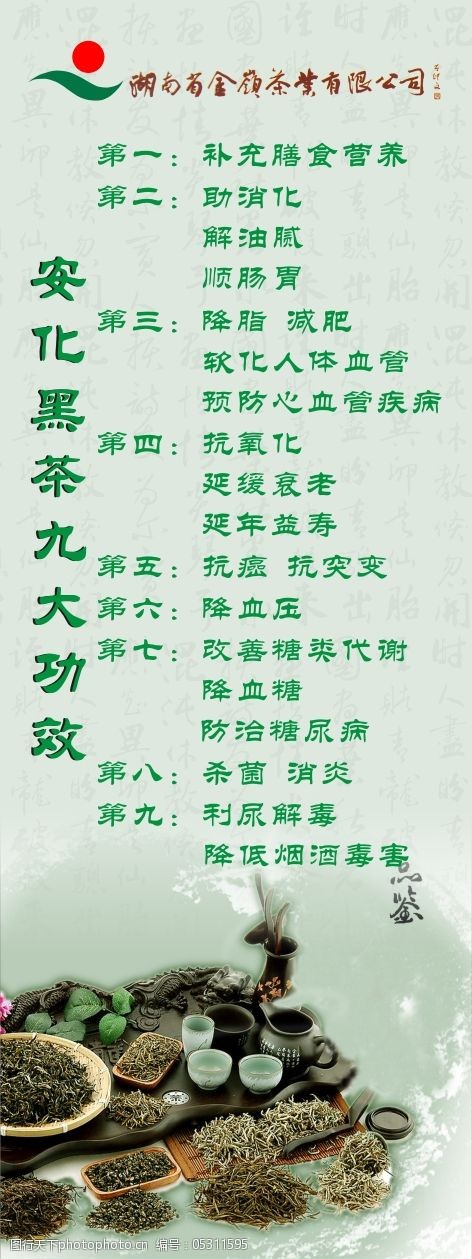 湖南省金嶺茶业有限公司
安化黑茶九大功效
第一：补充膳食营养
第二：助消化
解油腻
顺肠胃
第三：降脂 减肥
软化人体血管
预防心血管疾病
第四：抗氧化
延缓衰老
延年益寿
第五：抗癌 抗突变
第六：降血压
第七：改善糖类代谢
降血糖
防治糖尿病
第八：杀菌 消炎
第九：利尿解毒
降低烟酒毒害
品鉴
茶
图行天下photophoto.cn 编号：05311595